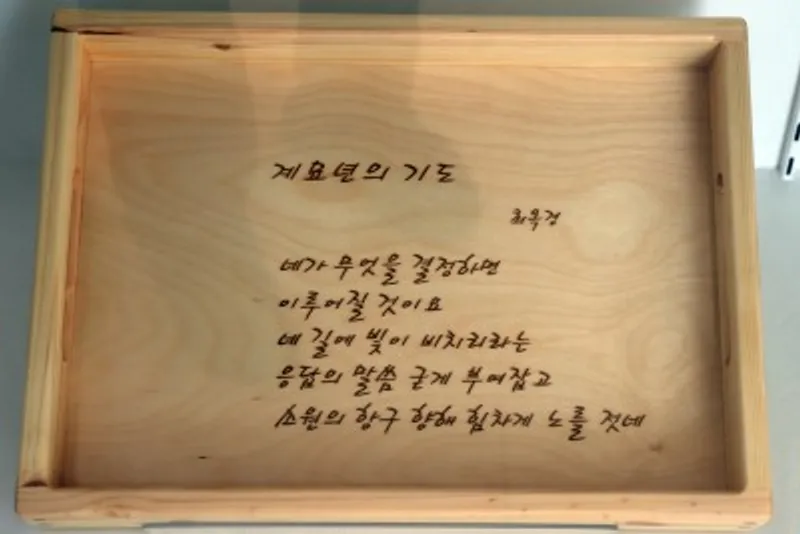 계묘년의 기도
최옥경
네가 무엇을 결정하면
이루어질 것이요
네 길에 빛이 비치리라는
응답의 말씀 굳게 부여잡고
소원의 항구 향해 힘차게 노를 젓네